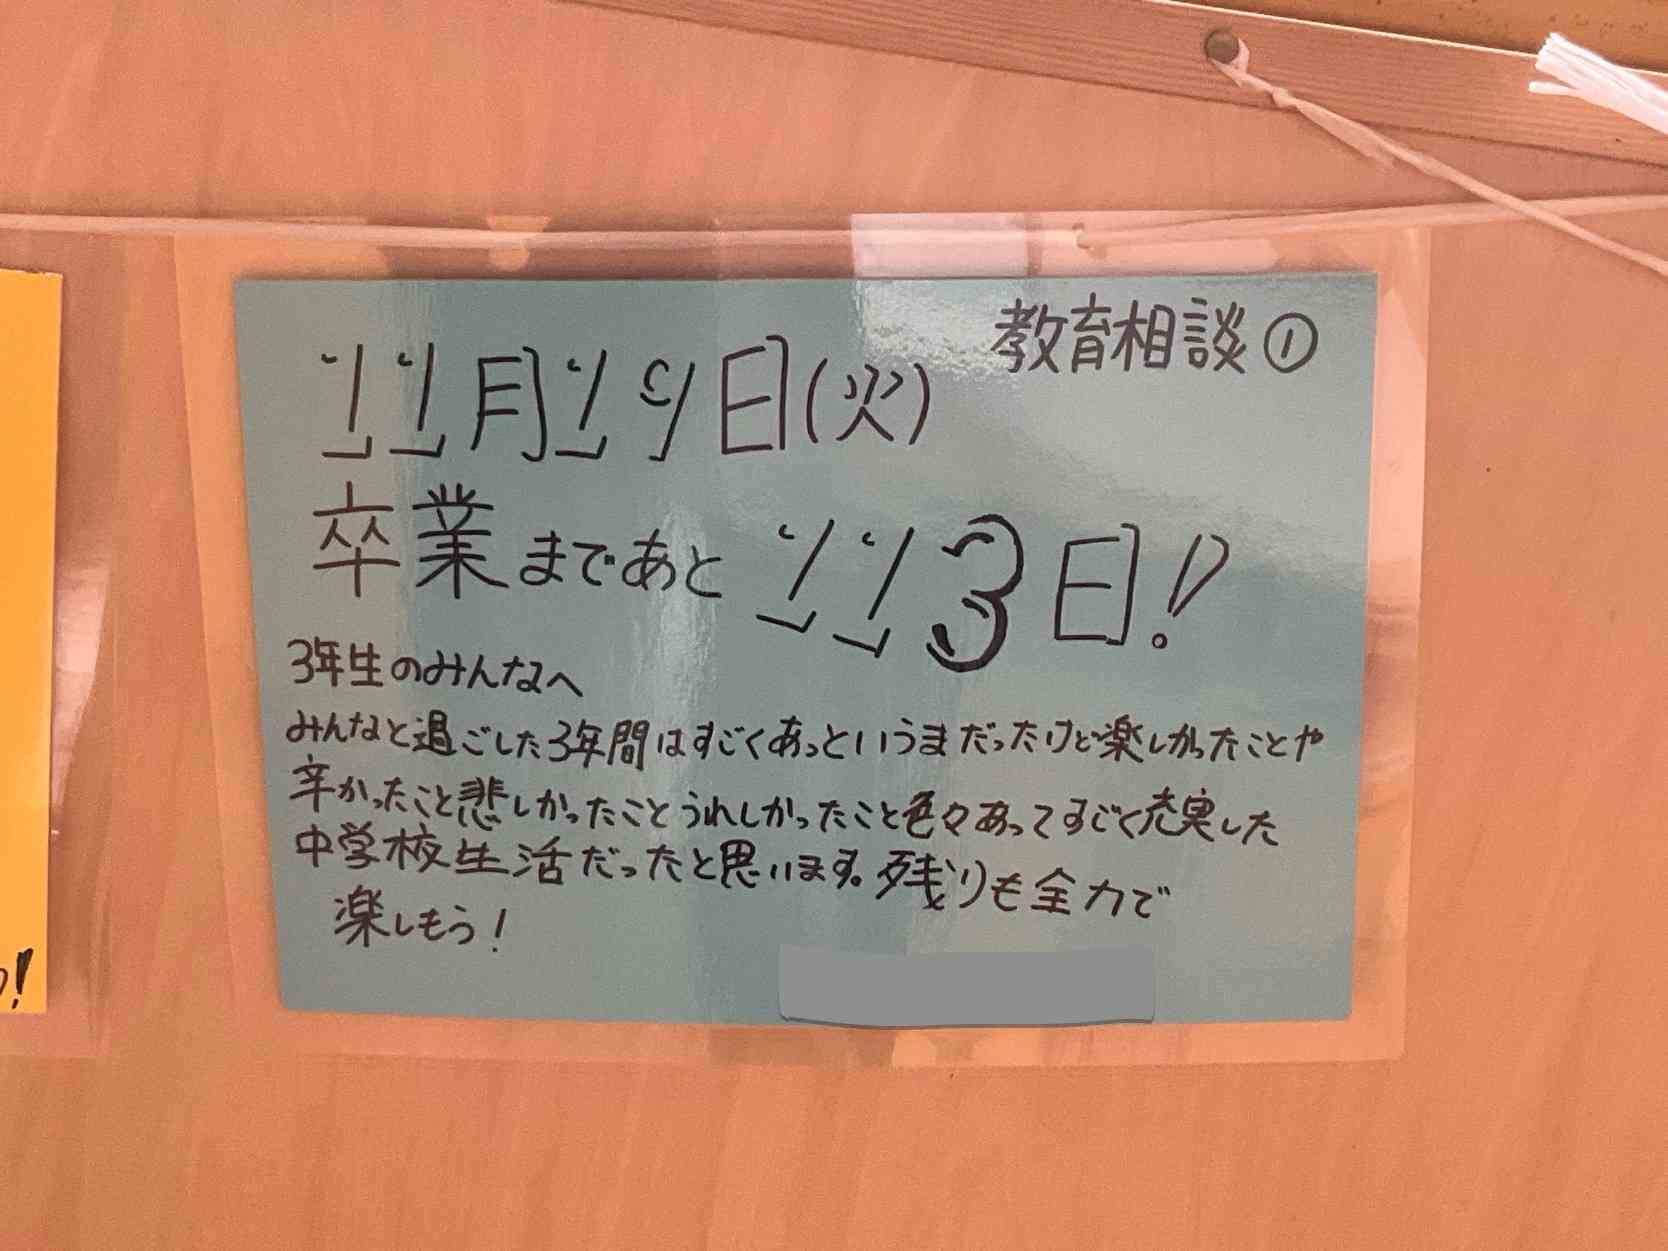 教育相談①
11月19日(火)
卒業まであと113日!
3年生のみんなへ
みんなと過ごした3年間はすごくあっというまだったけど楽しかったことや
辛かったこと悲しかったことうれしかったこと色々あってすごく充実した
中学校生活だったと思います。残りも全力で
楽しもう!